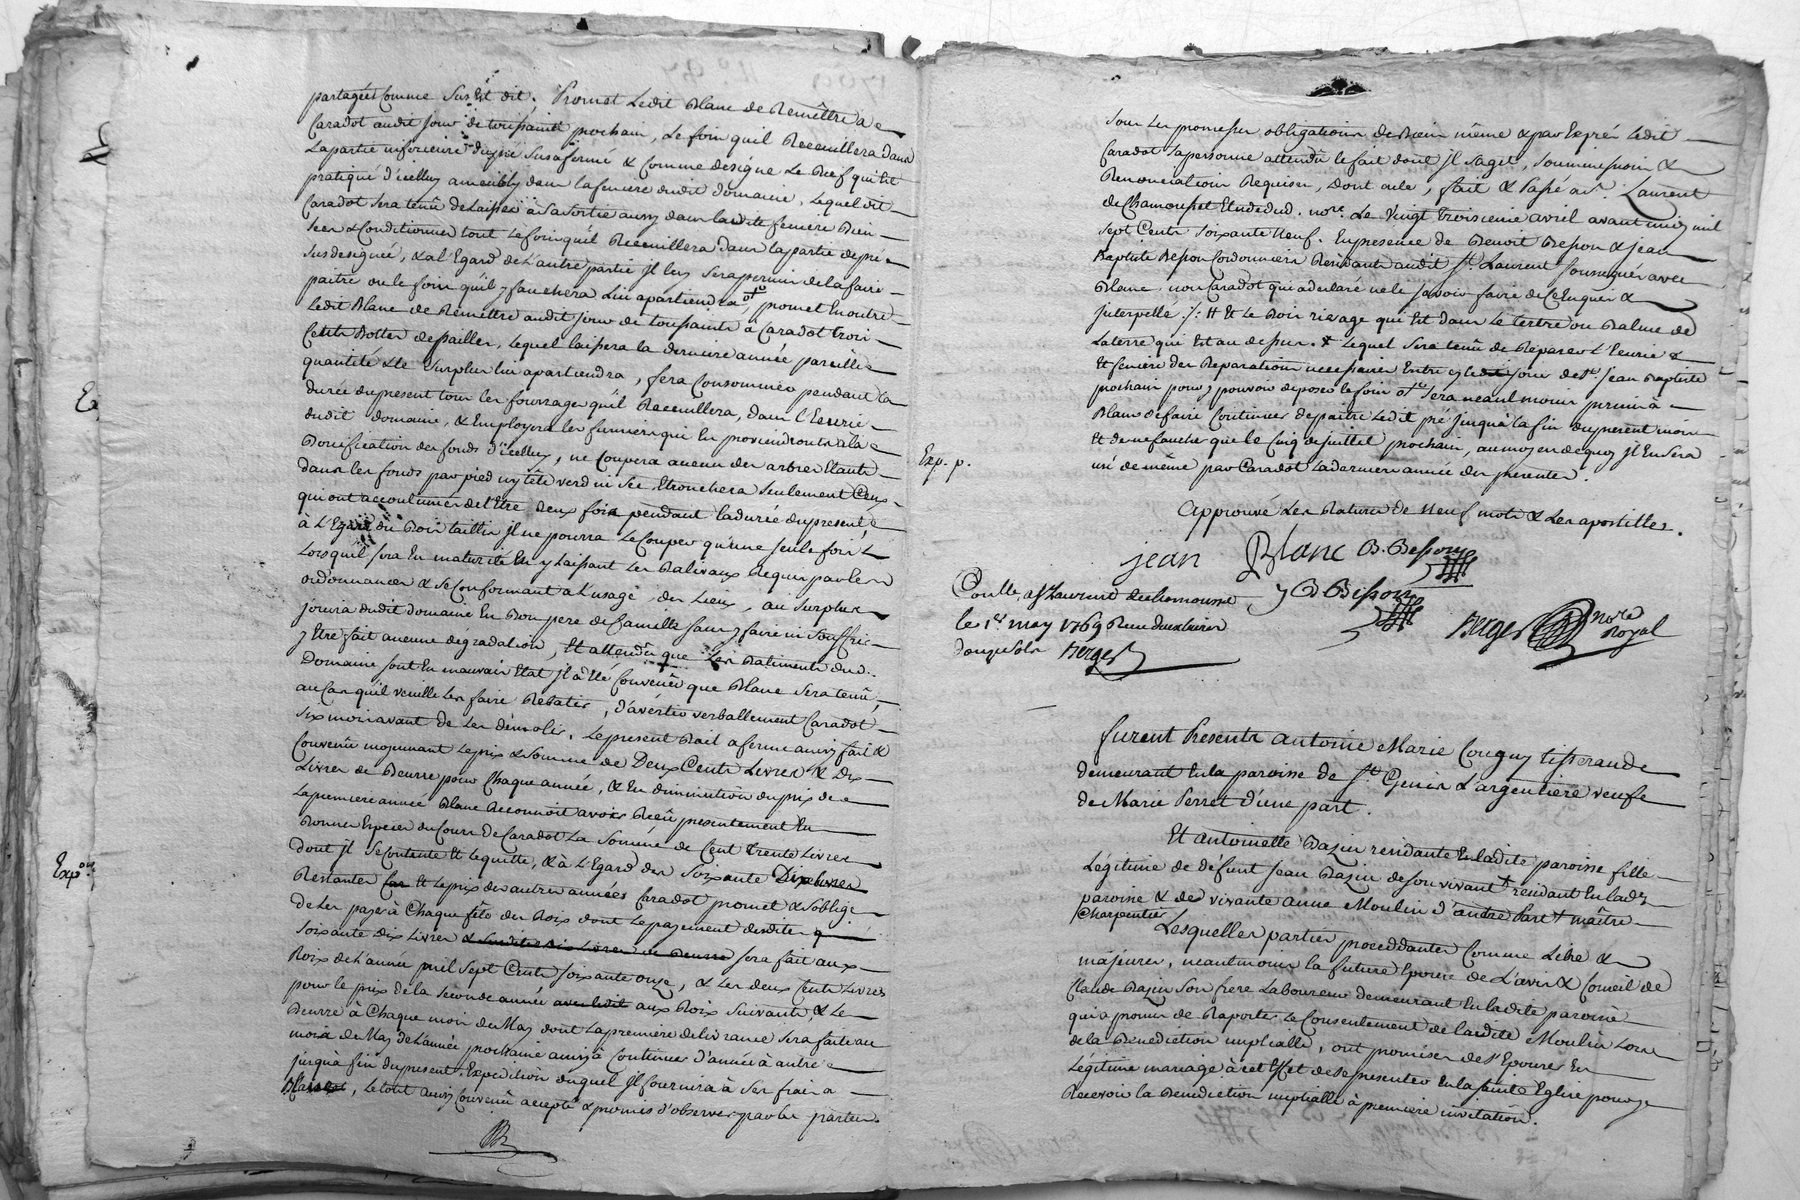 partagées comme sus est dit ; Promet ledit Blanc de Remettre a
Caradot audit jour de toussaint prochain, le foin quil Receuillera dans
la partie inferieure dupré susafermé & comme designe le Bief qui est
pratiqué d'icelluy ameubly dans la feniere dudit domaine, lequel dit
Caradot sera tenû de laisser à sa sortie aussy dans ladite feniere Bien
sec & Conditionné tout le foin qu'il Receuillera dans la partie de pré
sus designée, & a l'Egard de l'autre partie Jl luy sera permis de la faire
paitre ou le foin qu'il y fauchera Lui apartiendra, promet En outre
ledit Blanc de Remettre audit jour de toussaints à Caradot trois
Cents Bottes de pailles, lequel laissera la derniere année pareille
quantité & le surplus lui apartiendra, fera Consommer pendant la
durée du present tous les fourrages qu'il Receuillera, dans l'Ecurie
dudit domaine, & Employera les fumiers qui En proviendront à la
Bonification des fonds d'icelluy, ne Coupera aucun des arbres Etants
dans les fonds par pied ny tête verd ni sec Etronchera seulement Ceux
qui ont accoutumés de l'Etre deux fois pendant la durée du present,
à L'Egard du Bois taillis Jl ne pourra le Couper qu'une seule fois &
Lorsquil sera En maturité En y laissant les Balivaux Requis par les
ordonnances & se Conformant a l'usage des Lieux, au surplus
jouira dudit domaine En Bon pere de famille sans y faire ni souffrir
y Etre fait aucune degradation, Et attendû que les Batiments dud.
Domaine sont En mauvais Etat Jl a Eté Convenû que Blanc sera tenû,
au Cas qu'il veuille les faire Rebatir, d'avertir verballement Caradot
six mois avant de les démolir. Le present Bail a ferme aussy fait &
Convenû moyennant le prix & somme de Deux Cents Livres & Dix
Livres de Beurre pour Chaque année, & En diminution du prix de
la premiere année Blanc Reconnoit avoir Reçû presentement En
Bonnes Especes du Cours de Caradot La Somme de Cent trente Livres
dont Jl se contente Et le quitte, & à L'Egard des Soixante Dix livres
Restantes Et le prix des autres années Caradot promet & s'oblige
de les payer à Chaque fête des Rois dont le payement desdites
soixante Dix Livres sera fait aux
Rois de l'année mil sept Cents soixante onze, & les deux Cents Livres
pour le prix de la seconde année aux Rois suivants, & le
Beurre à Chaque mois de May dont la premiere delivrance sera faite au
mois de May de l'année prochaine ainsy à Continuer d'année à autre
jusqu'à fin du present, Expedition duquel Jl fournira à ses frais a
Blanc, le tout ainsy Convenû accepté & promis d'observer par les parties
Exp.on
Sous les promesses obligations de Biens même & par Exprés ledit
Caradot sa personne attendû le fait dont Jl s'agit, soumissions &
Renonciations Requises, dont acte, fait & Passé a St. Laurent
de Chamousset Etude dud. nore. le vingt troisieme avril avant midy mil
sept Cents soixante neuf. En presence de Benoit Besson & Jean
Baptiste Besson Cordonniers Residants audit St. Laurent soussignés avec
Blanc non Caradot qui a declaré ne le savoir faire de Ce Enquis &
Jnterpellé :/: # & le Bois rivage qui Est dans le tertre ou Balme de
la terre qui Est au dessus. + lequel sera tenû de Réparer l'Ecurie &
Et feniere des Reparations necessaires Entre cy le jour de St. Jean Baptiste
prochain pour y pouvoir deposer le foin & sera neanmoins permis à
Blanc de faire Continuer de paitre ledit pré jusqu'à la fin du present mois
Et de ne faucher que le cinq de juillet prochain, au moyen de quoy Jl En sera
usé de même par Caradot la derniere année des presentes.
Approuvé les Ratures de neuf mots & les apostilles.
jean Blanc B. Besson
J B Besson
Berger nore Royal
Conlle. a St Laurent de chamousset
le 1er may 1769 Reçu
douze sols Berger
Exp. p.
furent Presents antoine Marie Couguy tisserand
demeurant En la paroisse de St. Genis L'argentiere veufe
de Marie Perret d'une part.
Et Antoinette Bazin residante En ladite paroisse fille
Légitime de defunt Jean Bazin de son vivant + residant En lad.
paroisse & de vivante anne Moulin d'autre Part + maître
Charpentier
Lesquelles parties proceddantes Comme Libre &
majeures, neantmoins la future Epouse de L'avis & Conseil de
Claude Bazin son frere Laboureur demeurant En ladite paroisse
qui a promis de Raporter le Consentement de ladite Moulin lors
de la Benediction nuptialle, ont promises de s'Epouser En
Légitime mariage à cet Effet de se presenter En la sainte Eglise pour y
Recevoir la Benediction nuptialle à premiere invitation.